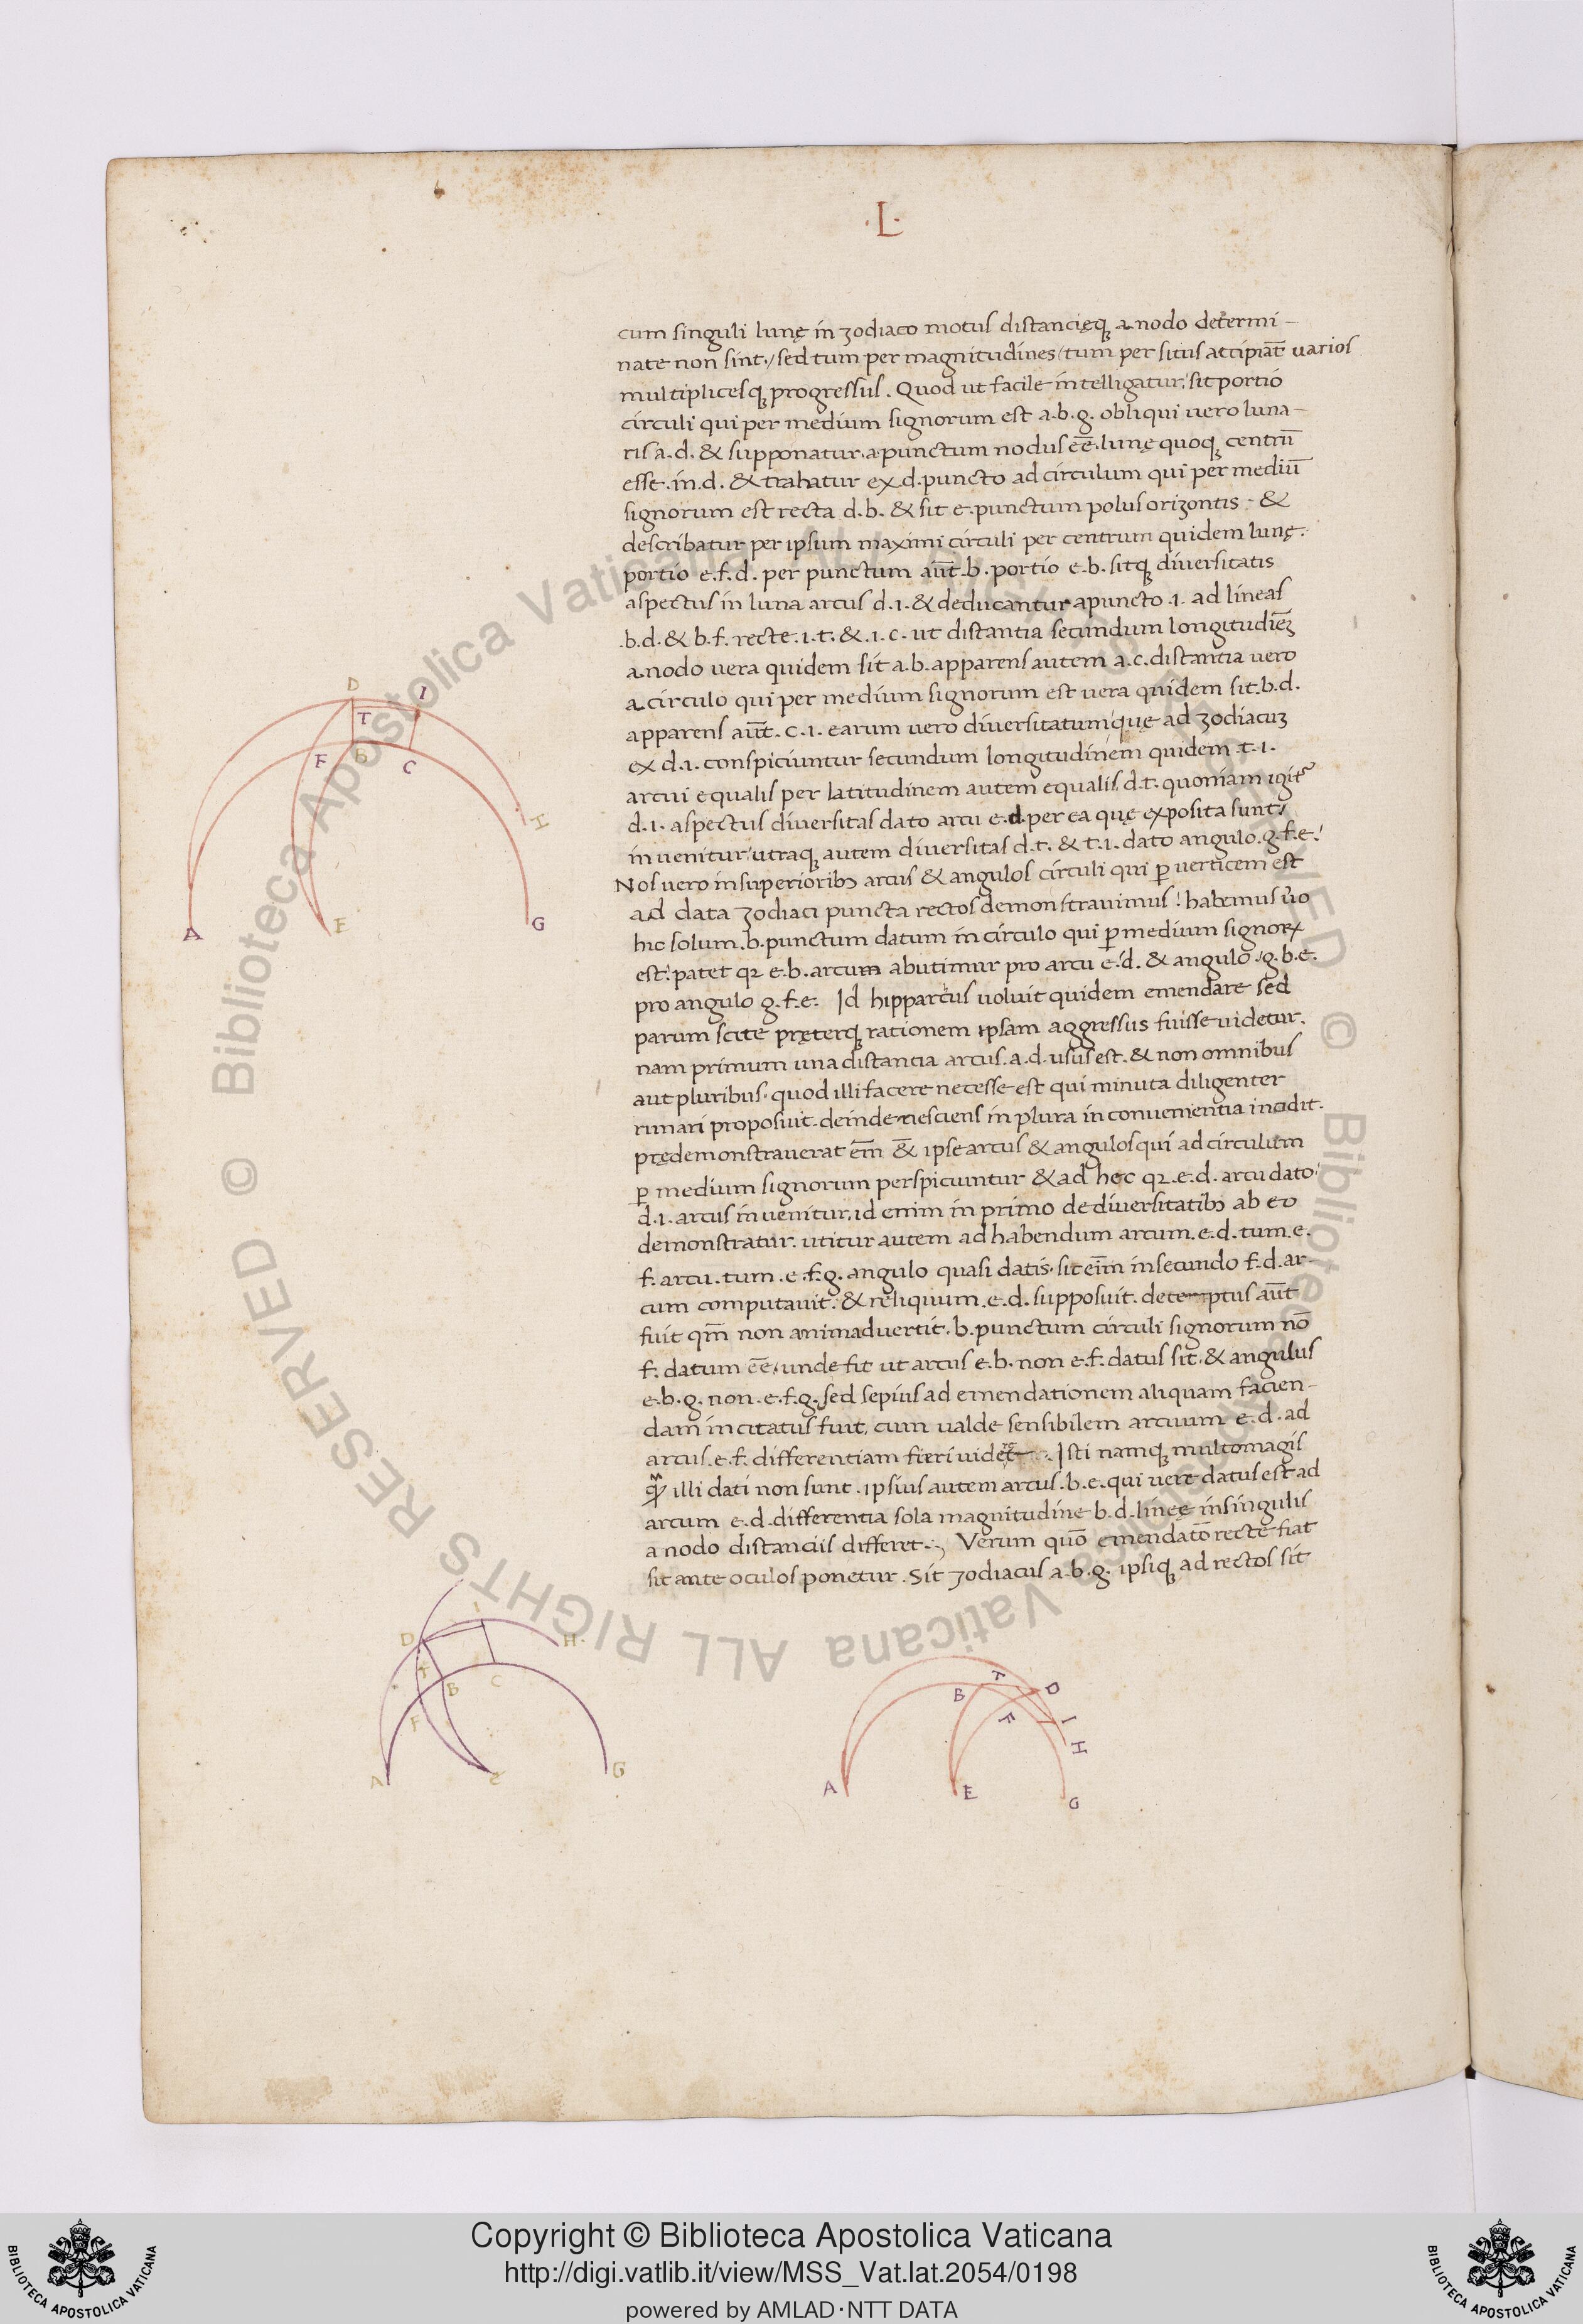 ·L·
cum singuli lunę in zodiaco motus distancięq; a nodo determi-
nate non sint, sed tum per magnitudines tum per situs accipiāt varios
multiplicesq; progressus. Quod ut facile intelligatur, sit portio
circuli qui per medium signorum est a.b.g. obliqui vero luna-
ris a.d. & supponatur .a. punctum nodus eē. lunę quoq; centrū
esse .in .d. & trahatur ex .d. puncto ad circulum qui per mediū
signorum est recta d.b. & sit e. punctum polus orizontis. &
describatur per ipsum maximi circuli per centrum quidem lunę.
portio e.f.d. per punctum aūt .b. portio e.b. sitq; diversitatis
aspectus in luna arcus d.i. & deducantur a puncto .i. ad lineas
.b.d. & b.f. recte .i.t. & .i.c. ut distantia secundum longitudiēʒ
a nodo vera quidem sit a.b. apparens autem a.c. distantia vero
a circulo qui per medium signorum est vera quidem sit .b.d.
apparens aūt .c.i. earum vero diversitatum quę ad zodiacuʒ
ex d.i. conspiciuntur secundum longitudinem quidem .t.i.
arcui equalis per latitudinem autem equalis .d.t. quoniam igit᷑
d.i. aspectus diversitas dato arcu e.d. per ea quę exposita sunt,
invenitur, utraq; autem diversitas d.t. & t.i. dato angulo .g.f.e.
Nos vero in superiorib; arcus & angulos circuli qui ꝑ verticem est
ad data zodiaci puncta rectos demonstravimus: habemus ūo
hic solum .b. punctum datum in circulo qui ꝑ medium signoꝝ
est: patet qꝛ e.b. arcum abutimur pro arcu e.d. & angulo .g.b.e.
pro angulo g.f.e. Id hipparcus voluit quidem emendare sed
parum scite pręterq; rationem ipsam aggressus fuisse videtur.
nam primum una distancia arcus .a.d. usus est. & non omnibus
aut pluribus. quod illi facere necesse est qui minuta diligenter
rimari proposuit. deinde nesciens in plura inconvenientia incidit.
prędemonstraverat em̄ & ipse arcus & angulos qui ad circulum
ꝑ medium signorum perspiciuntur & ad hęc qꝛ .e.d. arcu dato
d.i. arcus invenitur, id enim in primo de diversitatib; ab eo
demonstratur. utitur autem ad habendum arcum .e.d. tum .e.
f. arcu .tum .e.f.g. angulo quasi datis. sic eim̄ in secundo f.d. ar-
cum computavit. & reliquum .e.d. supposuit. deceptus aūt
fuit qm̄ non animadvertit .b. punctum circuli signorum nō
f. datum eē, unde fit ut arcus e.b. non e.f. datus sit. & angulus
e.b.g. non .e.f.g. sed sepius ad emendationem aliquam facien-
dam incitatus fuit, cum valde sensibilem arcuum e.d. ad
arcus .e.f. differentiam fieri videret. Isti namq; multo magis
illi dati non sunt. ipsius autem arcus .b.e. qui vere datus est ad
arcum e.d. differentia sola magnitudine b.d. lineę in singulis
a nodo distanciis differet. Verum quō emendatō recte fiat
sic ante oculos ponetur. Sit zodiacus a.b.g. ipsiq; ad rectos sit
D I
T
F B C
H
A E G
I
D H
T B C
F
A E G
T D
B F I
H
A E G
© Biblioteca Apostolica Vaticana ALL RIGHTS RESERVED © Biblioteca Apostolica Vaticana ALL RIGHTS RESERVED
Copyright © Biblioteca Apostolica Vaticana
http://digi.vatlib.it/view/MSS_Vat.lat.2054/0198
powered by AMLAD·NTT DATA
BIBLIOTECA APOSTOLICA VATICANA
BIBLIOTECA APOSTOLICA VATICANA